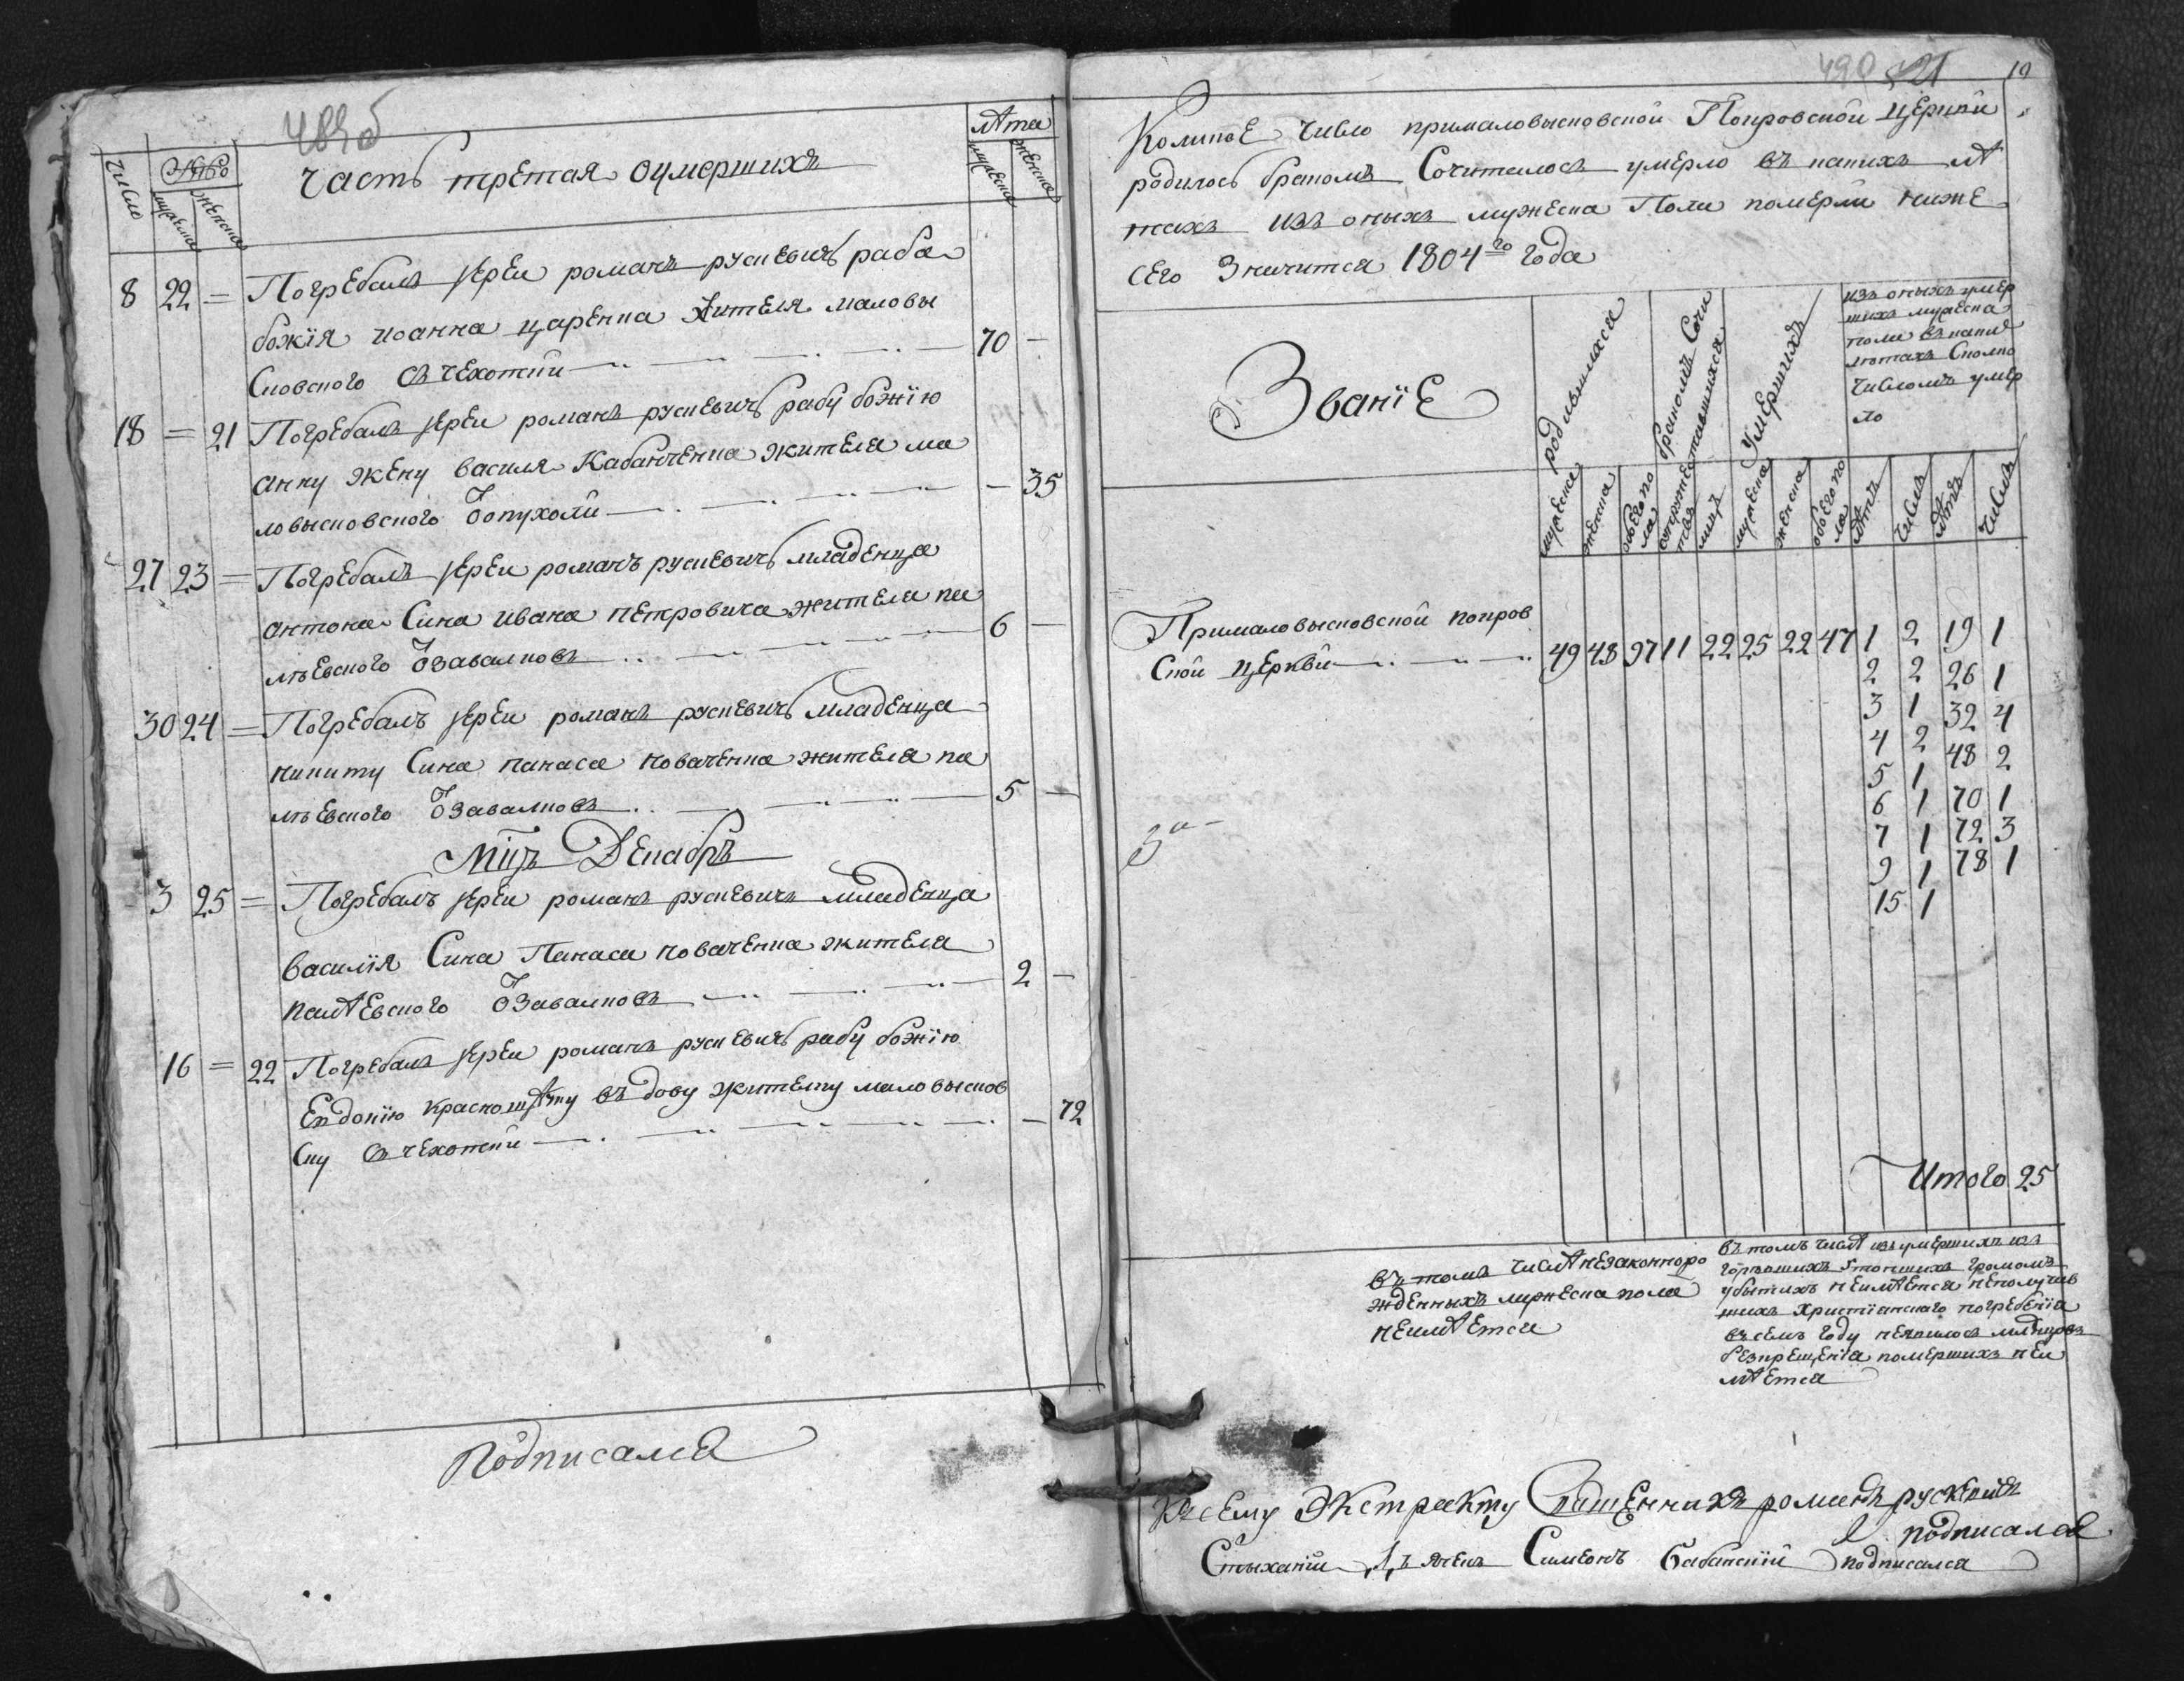 489 об
Число
№
мужеска
женска
Часть третая оумершихъ
лѣта
мужеска
женска
8 22 = Погребалъ иереи романъ рускевичъ раба
божїя иоанна царенка жителя маловы
сковского съ чехоткы 70 —
18 = 21 Погребалъ иереи романъ рускевичъ рабу божїю
анну жену василя Кабанченка жителя ма
ловысковского Ѿ опухоли — 35
27 23 = Погребалъ иереи романъ рускевичъ младенца
антона Сина ивана петровича жителя па
лѣевского Ѿ завалковъ 6 —
30 24 = Погребалъ иереи романъ рускевичъ младенца
никиту Сина панаса коваченка жителя па
лѣевского Ѿ завалковъ 5 —
мцъ Декабръ
3 25 = Погребалъ иереи романъ рускевичъ младенца
василїя Сина Панаса коваченка жителя
палѣевского Ѿ завалковъ 2 —
16 = 22 Погребалъ иереи романъ рускевичъ рабу божїю
Евдокїю въдову жителку маловысков
ску съ чехоткы — 72
Подписался
490 21 19
Коликое число прималовысковской Покровской церкви
родилось бракомъ Сочиталось умерло въ какихъ лѣ
тахъ изъ оныхъ мужеска Пола померли ниже
сего Значится 1804го года
Званїе
родившихся
бракомъ Сочи
тавшихся
Умершихъ
изъ оныхъ умер
шихъ мужеска
пола въ какихъ
лѣтахъ Сколко
числомъ умер
ло
мужеска
женска
обоего по
ла
супружес
твъ
лицъ
мужеска
женска
обоего по
ла
лѣтъ
числъ
лѣтъ
числъ
Прималовысковской покров
ской церкви 49 48 97 11 22 25 22 47 1 2 19 1
2 2 26 1
3 1 32 4
4 2 48 2
5 1 70 1
6 1 72 3
7 1 78 1
9 1
15 1
Итого 25
въ томъ числѣ незаконноро
жденныхъ мужеска пола
неимѣется
въ томъ числѣ изъ умершихъ из
горѣвшихъ утопшихъ громомъ
убытихъ неимѣется неполучив
шихъ христїанскаго погребенїя
въ семъ году неявилось младенцовъ
безкрещенїя помершихъ неи
мѣется
Ксему Экстракту Священникъ романъ рускевичъ
подписался
Симеонъ Бабанскїй подписался